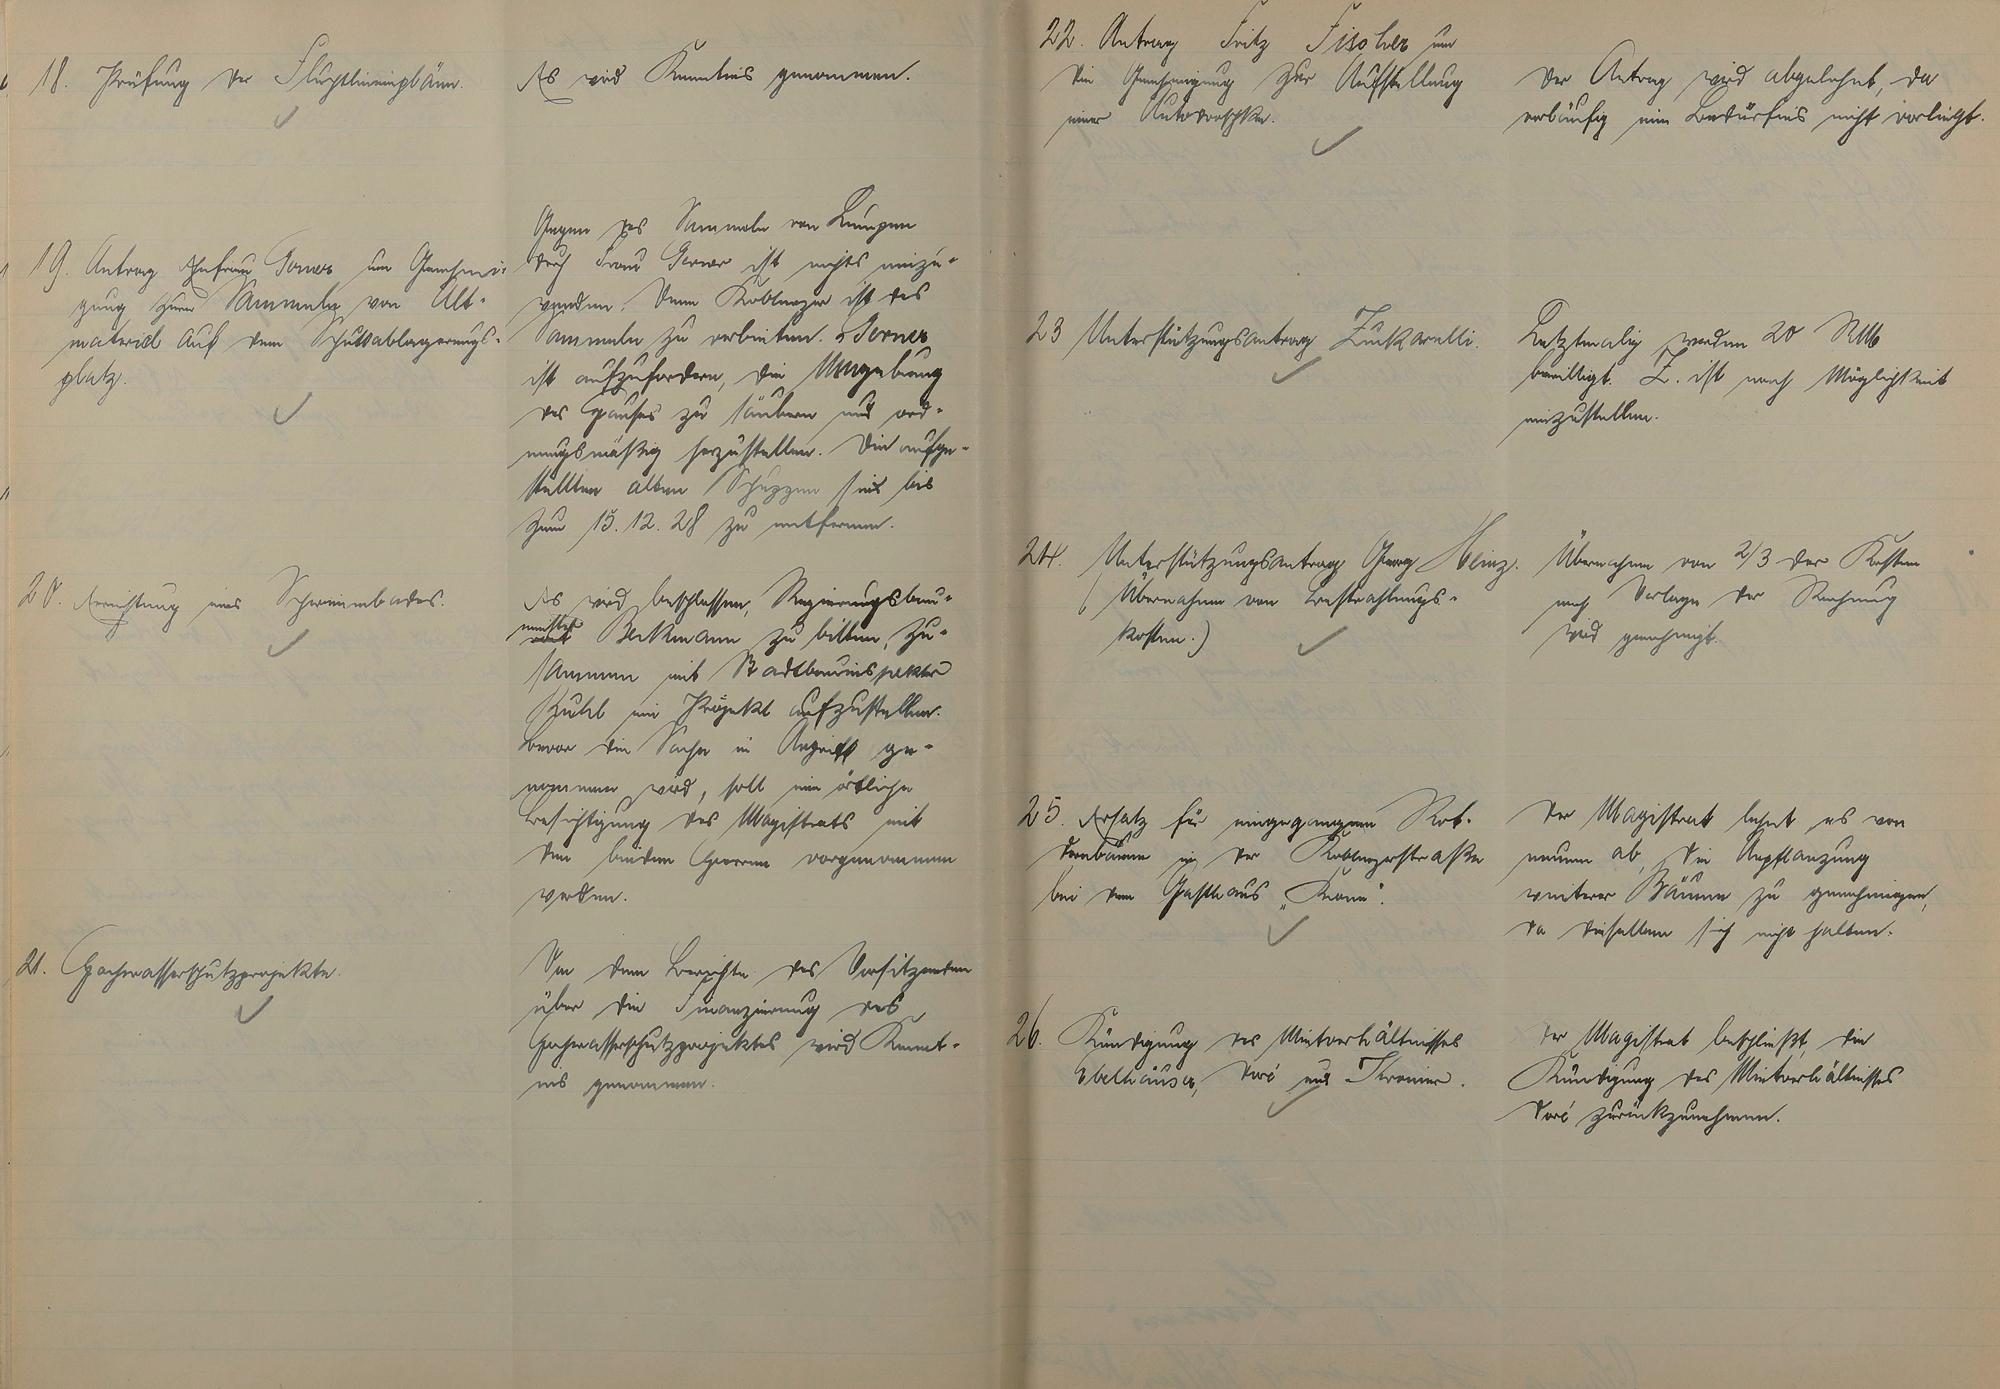 18. Prüfung der Fluchtlinienpläne.
Es wird Kenntnis genommen.
19. Antrag Ehefrau Gerner um Genehmi-
gung zum Sammeln von Alt-
material auf dem Schuttablagerungs-
platz.
Gegen das Sammeln von Lumpen
durch Frau Gerner ist nichts einzu-
wenden. Dem Koblenzer ist das
Sammeln zu verbieten. Gerner
ist aufzufordern, die Umgebung
des Hauses zu säubern und ord-
nungsmäßig herzustellen. Die aufge-
stellten alten Schuppen sind bis
zum 15.12.28 zu entfernen.
20. Errichtung eines Schwimmbades.
Es wird beschlossen, Regierungsbau-
meister Beckmann zu bitten, zu-
sammen mit Stadtbauinspektor
Kuhl ein Projekt aufzustellen.
Bevor die Sache in Angriff ge-
nommen wird, soll eine örtliche
Besichtigung des Magistrats mit
den beiden Herren vorgenommen
werden.
21. Hochwasserschutzprojekte.
Von dem Berichte des Vorsitzenden
über die Finanzierung des
Hochwasserschutzprojektes wird Kennt-
nis genommen.
22. Antrag Fritz Fischer um
die Genehmigung zur Aufstellung
einer Autodroschke.
Der Antrag wird abgelehnt, da
vorläufig ein Bedürfnis nicht vorliegt.
23 Unterstützungsantrag Zuckarelli.
Letztmalig werden 20 RM
bewilligt. Z. ist nach Möglichkeit
einzustellen.
24. Unterstützungsantrag Georg Heinz.
(Übernahme von Bestrahlungs-
kosten.)
Übernahme von 2/3 der Kosten
nach Vorlage der Rechnung
wird genehmigt.
25. Ersatz für eingegangene Rot-
dornbäume in der Koblenzerstraße
bei dem Gasthaus „Krone".
Der Magistrat lehnt es von
neuem ab, die Anpflanzung
weiterer Bäume zu genehmigen,
da dieselben sich nicht halten.
26. Kündigung des Mietverhältnisses
Ebelhäuser, Doré und Kremer.
Der Magistrat beschließt, die
Kündigung des Mietverhältnisses
Doré zurückzunehmen.